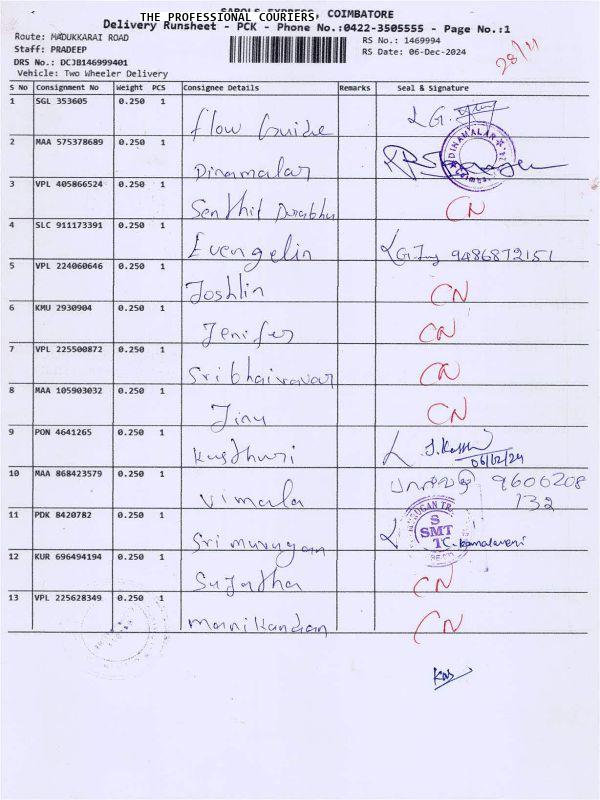 THE PROFESSIONAL COURIERS, COIMBATORE
Delivery Runsheet - PCK - Phone No.:0422-3505555 - Page No.:1
Route: MADUKKARAI ROAD
RS No.: 1469994
Staff: PRADEEP
RS Date: 06-Dec-2024
28/11
DRS No.: DCJB146999401
Vehicle: Two Wheeler Delivery
S No Consignment No Weight PCS Consignee Details Remarks Seal & Signature
1 SGL 353605 0.250 1 Flow Guide
2 MAA 575378689 0.250 1 Dinamalar DINAMALAR
3 VPL 405866524 0.250 1 Senthil Prabhu CN
4 SLC 911173391 0.250 1 Evengelin 9486872151
5 VPL 224060646 0.250 1 Joshlin CN
6 KMU 2930904 0.250 1 Jenifer CN
7 VPL 225500872 0.250 1 Sribhairavar CN
8 MAA 105903032 0.250 1 Jinu CN
9 PON 4641265 0.250 1 Kusthuri 06/12/24
10 MAA 868423579 0.250 1 Vimala 9600208
132
11 PDK 8420782 0.250 1 Sri murugan SMT C. Kamalaveni
12 KUR 696494194 0.250 1 Sujatha CN
13 VPL 225628349 0.250 1 manikandan CN